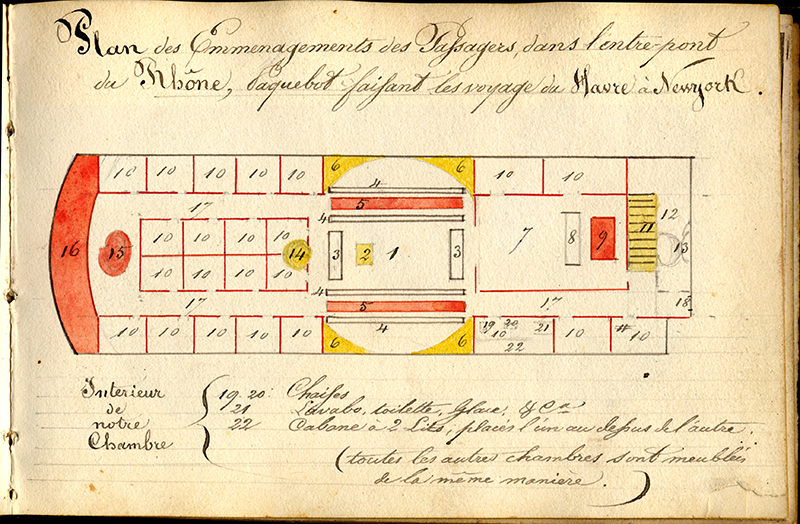 Plan des Emmenagements des Passagers, dans l'entre-pont
du Rhône, Paquebot faisant les voyage du Havre à Newyork.
10 10 10 10 10 6 6 10 10
4
17 5 12
4
10 10 10 10 7 8 9 11 13
16 15 14 3 2 1 3
10 10 10 10
4
17 5 17 18
4
10 10 10 10 10 6 6 19 20 10 21 10 # 10
22
Interieur
de
notre
Chambre
19. 20: Chaises
21 Lavabo, toilette, Glace, & Ca
22 Cabane à 2 Lits, placés l'un au dessus de l'autre.
(toutes les autre chambres sont meublés
de la même maniere.)